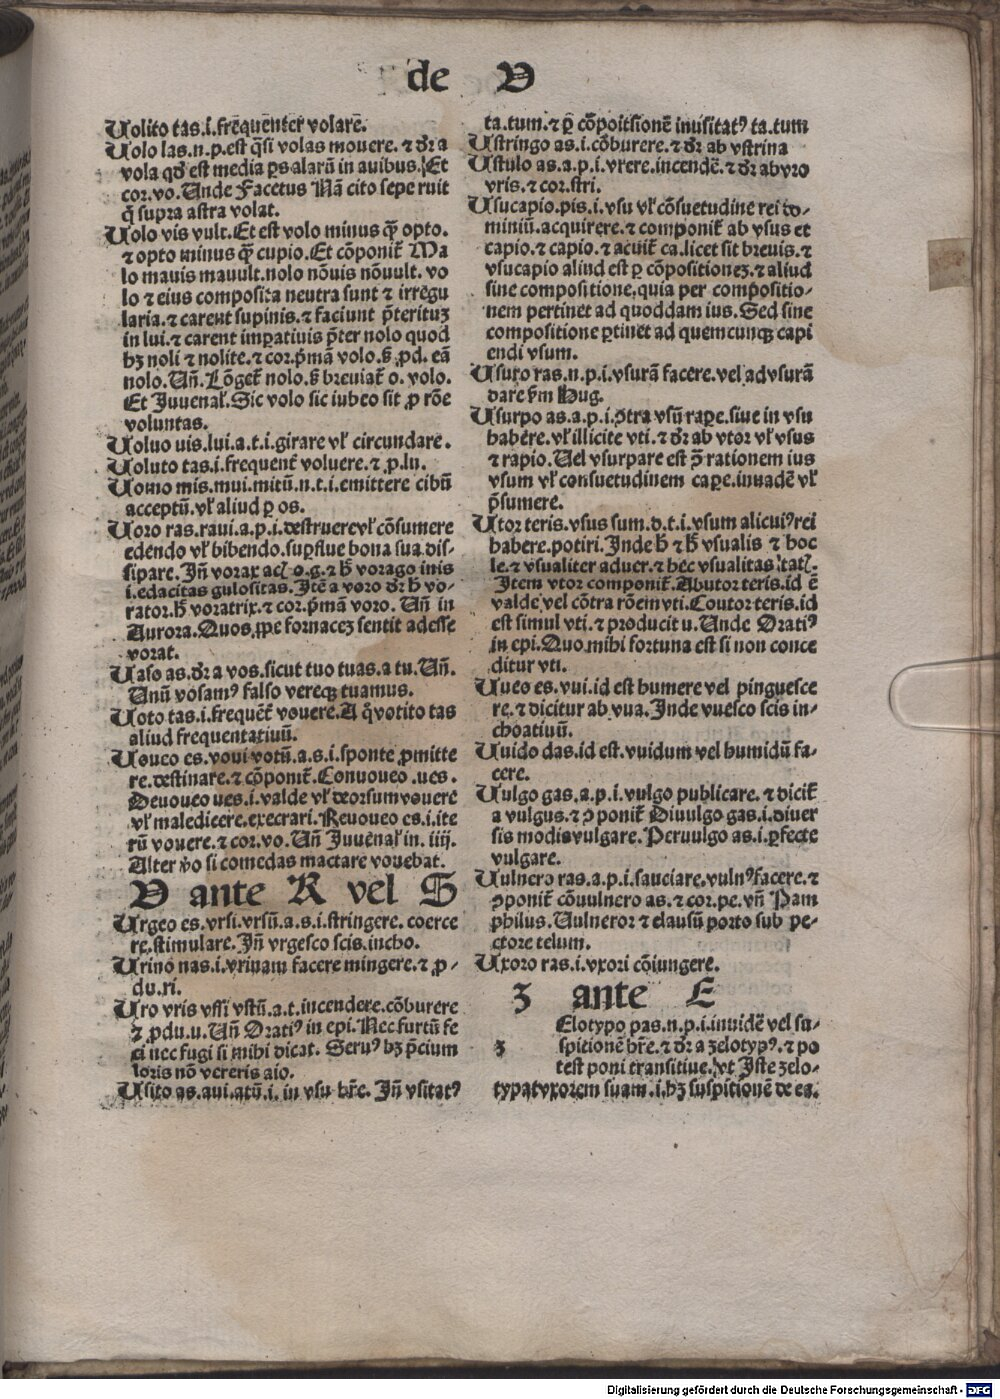 de V
Uolito tas.i.frequenter volare.
Uolo las.n.p.est q̄si volas mouere.⁊ dr̄ a
vola qd̓ est media ꝑs alarū in auibus. Et
cor.vo. Unde Facetus Nā cito sepe ruit
q̄ supra astra volat.
Uolo vis vult. Et est volo minus q̄ꝫ opto.
⁊ opto minus q̄ꝫ cupio. Et cōponit᷑ Ma
lo mauis mauult. nolo nōuis nōuult. vo
lo ⁊ eius composita neutra sunt ⁊ irregu
laria.⁊ carent supinis.⁊ faciunt p̄terituꝫ
in lui.⁊ carent imꝑatiuis p̄ter nolo quod
hꝫ noli ⁊ nolite.⁊ cor.p̄mā volo. ꝓd. eā
nolo. Uñ. Lōget᷑ nolo. breuiat᷑ o. volo.
Et Juuenal̓. Sic volo sic iubeo sit ꝓ rōe
voluntas.
Uoluo uis.lui.a.t.i.girare vl̓ circundare.
Uoluto tas.i.frequent᷑ voluere.⁊ ꝓ.lu.
Uomo mis.mui.mitū.n.t.i.emittere cibū
acceptū.vl̓ aliud ꝑ os.
Uoro ras.raui.a.p.i.destruere vl̓ cōsumere
edendo vl̓ bibendo.supflue bona sua dis-
sipare. Jñ vorax .o.g.⁊ h̄ vorago inis
i.edacitas gulositas. Jtē a voro dr̄ h̄ vo-
rator.h̄ voratrix.⁊ cor.p̄mā voro. Uñ in
Aurora. Quos ꝓpe fornaceꝫ sentit adesse
vorat.
Uaso as.dr̄ a vos.sicut tuo tuas.a tu. Uñ.
Unū vosamꝰ falso vereqꝫ tuamus.
Uoto tas.i.frequēt᷑ vouere. A q̊ votito tas
aliud frequentatiuū.
Uoueo es.voui votū.a.s.i.sponte ꝓmitte
re.destinare.⁊ cōponit᷑. Conuoueo .ues.
Deuoueo ues.i.valde vl̓ deorsum vouere
vl̓ maledicere.execrari. Reuoueo es.i.ite
rū vouere.⁊ cor.vo. Uñ Juuenal̓ in. iiij.
Alter v̓o si comedas mactare vouebat.
V ante R vel S
Urgeo es.vrsi.vrsū.a.s.i.stringere.coerce
re.stimulare. Jñ vrgesco scis.incho.
Urino nas.i.vrinam facere mingere.⁊ ꝓ-
du.ri.
Uro vris vssi vstū.a.t.incendere.cōburere
⁊ ꝓdu.u. Uñ Oratiꝰ in epi. Nec furtū fe
ci nec fugi si mihi dicat. Seruꝰ hꝫ p̄cium
loris nō vereris aio.
Usito as.aui.atū.i. in vsu hr̄e. Jñ vsitatꝰ
ta.tum.⁊ ꝑ cōpoitsionē inusitatꝰ ta.tum
Ustringo as.i.cōburere.⁊ dr̄ ab vstrina
Ustulo as.a.p.i.vrere.incendē.⁊ dr̄ ab vro
vris.⁊ cor.stri.
Usucapio.pis.i.vsu vl̓ cōsuetudine rei do-
miniū.acquirere.⁊ componit᷑ ab vsus et
capio.⁊ capio.⁊ acuit᷑ ca.licet sit breuis.⁊
vsucapio aliud est ꝑ cōpositioneꝫ.⁊ aliud
sine compositione.quia per compositio-
nem pertinet ad quoddam ius. Sed sine
compositione ꝑtinet ad quemcunqꝫ capi
endi vsum.
Usuro ras.n.p.i.vsurā facere.vel ad vsurā
dare ẜm Hug.
Usurpo as.a.p.i.ↄtra vsū raꝑe.siue in vsu
habere.vl̓ illicite vti.⁊ dr̄ ab vtor vl̓ vsus
⁊ rapio. Uel vsurpare est p̄ rationem ius
vsum vl̓ consuetudinem caꝑe.inuadē vl̓
p̄sumere.
Utor teris.vsus sum.d.t.i.vsum alicuiꝰ rei
habere.potiri. Jnde h̄ ⁊ h̄ vsualis ⁊ hoc
le.⁊ vsualiter aduer.⁊ hec vsualitas tat.
Jtem vtor componit᷑. Abutor teris.id ē
valde vel cōtra rōem vti. Coutor teris.id
est simul vti.⁊ producit u. Unde Oratiꝰ
in epi. Quo mihi fortuna est si non conce
ditur vti.
Uueo es.vui.id est humere vel pinguesce
re.⁊ dicitur ab vua. Jnde vuesco scis in-
choatiuū.
Uuido das.id est.vuidum vel humidū fa-
cere.
Uulgo gas.a.p.i.vulgo publicare.⁊ dicit᷑
a vulgus.⁊ ↄponit᷑ Diuulgo gas.i.diuer
sis modis vulgare. Peruulgo as.i.ꝑfecte
vulgare.
Uulnero ras.a.p.i.sauciare.vulnꝰ facere.⁊
ↄponit᷑ cōuulnero as.⁊ cor.pe.vñ Pam
philus. Uulneror ⁊ clausū porto sub pe-
ctore telum.
Uxoro ras.i.vxori cōiungere.
Z ante E
Elotypo pas.n.p.i.inuidē vel su-
z spitionē hr̄e.⁊ dr̄ a zelotypꝰ.⁊ po
test poni transitiue. vt Jste zelo-
typat vxorem suam.i.hꝫ suspitionē de ea.
Digitalisierung gefördert durch die Deutsche Forschungsgemeinschaft - DFG